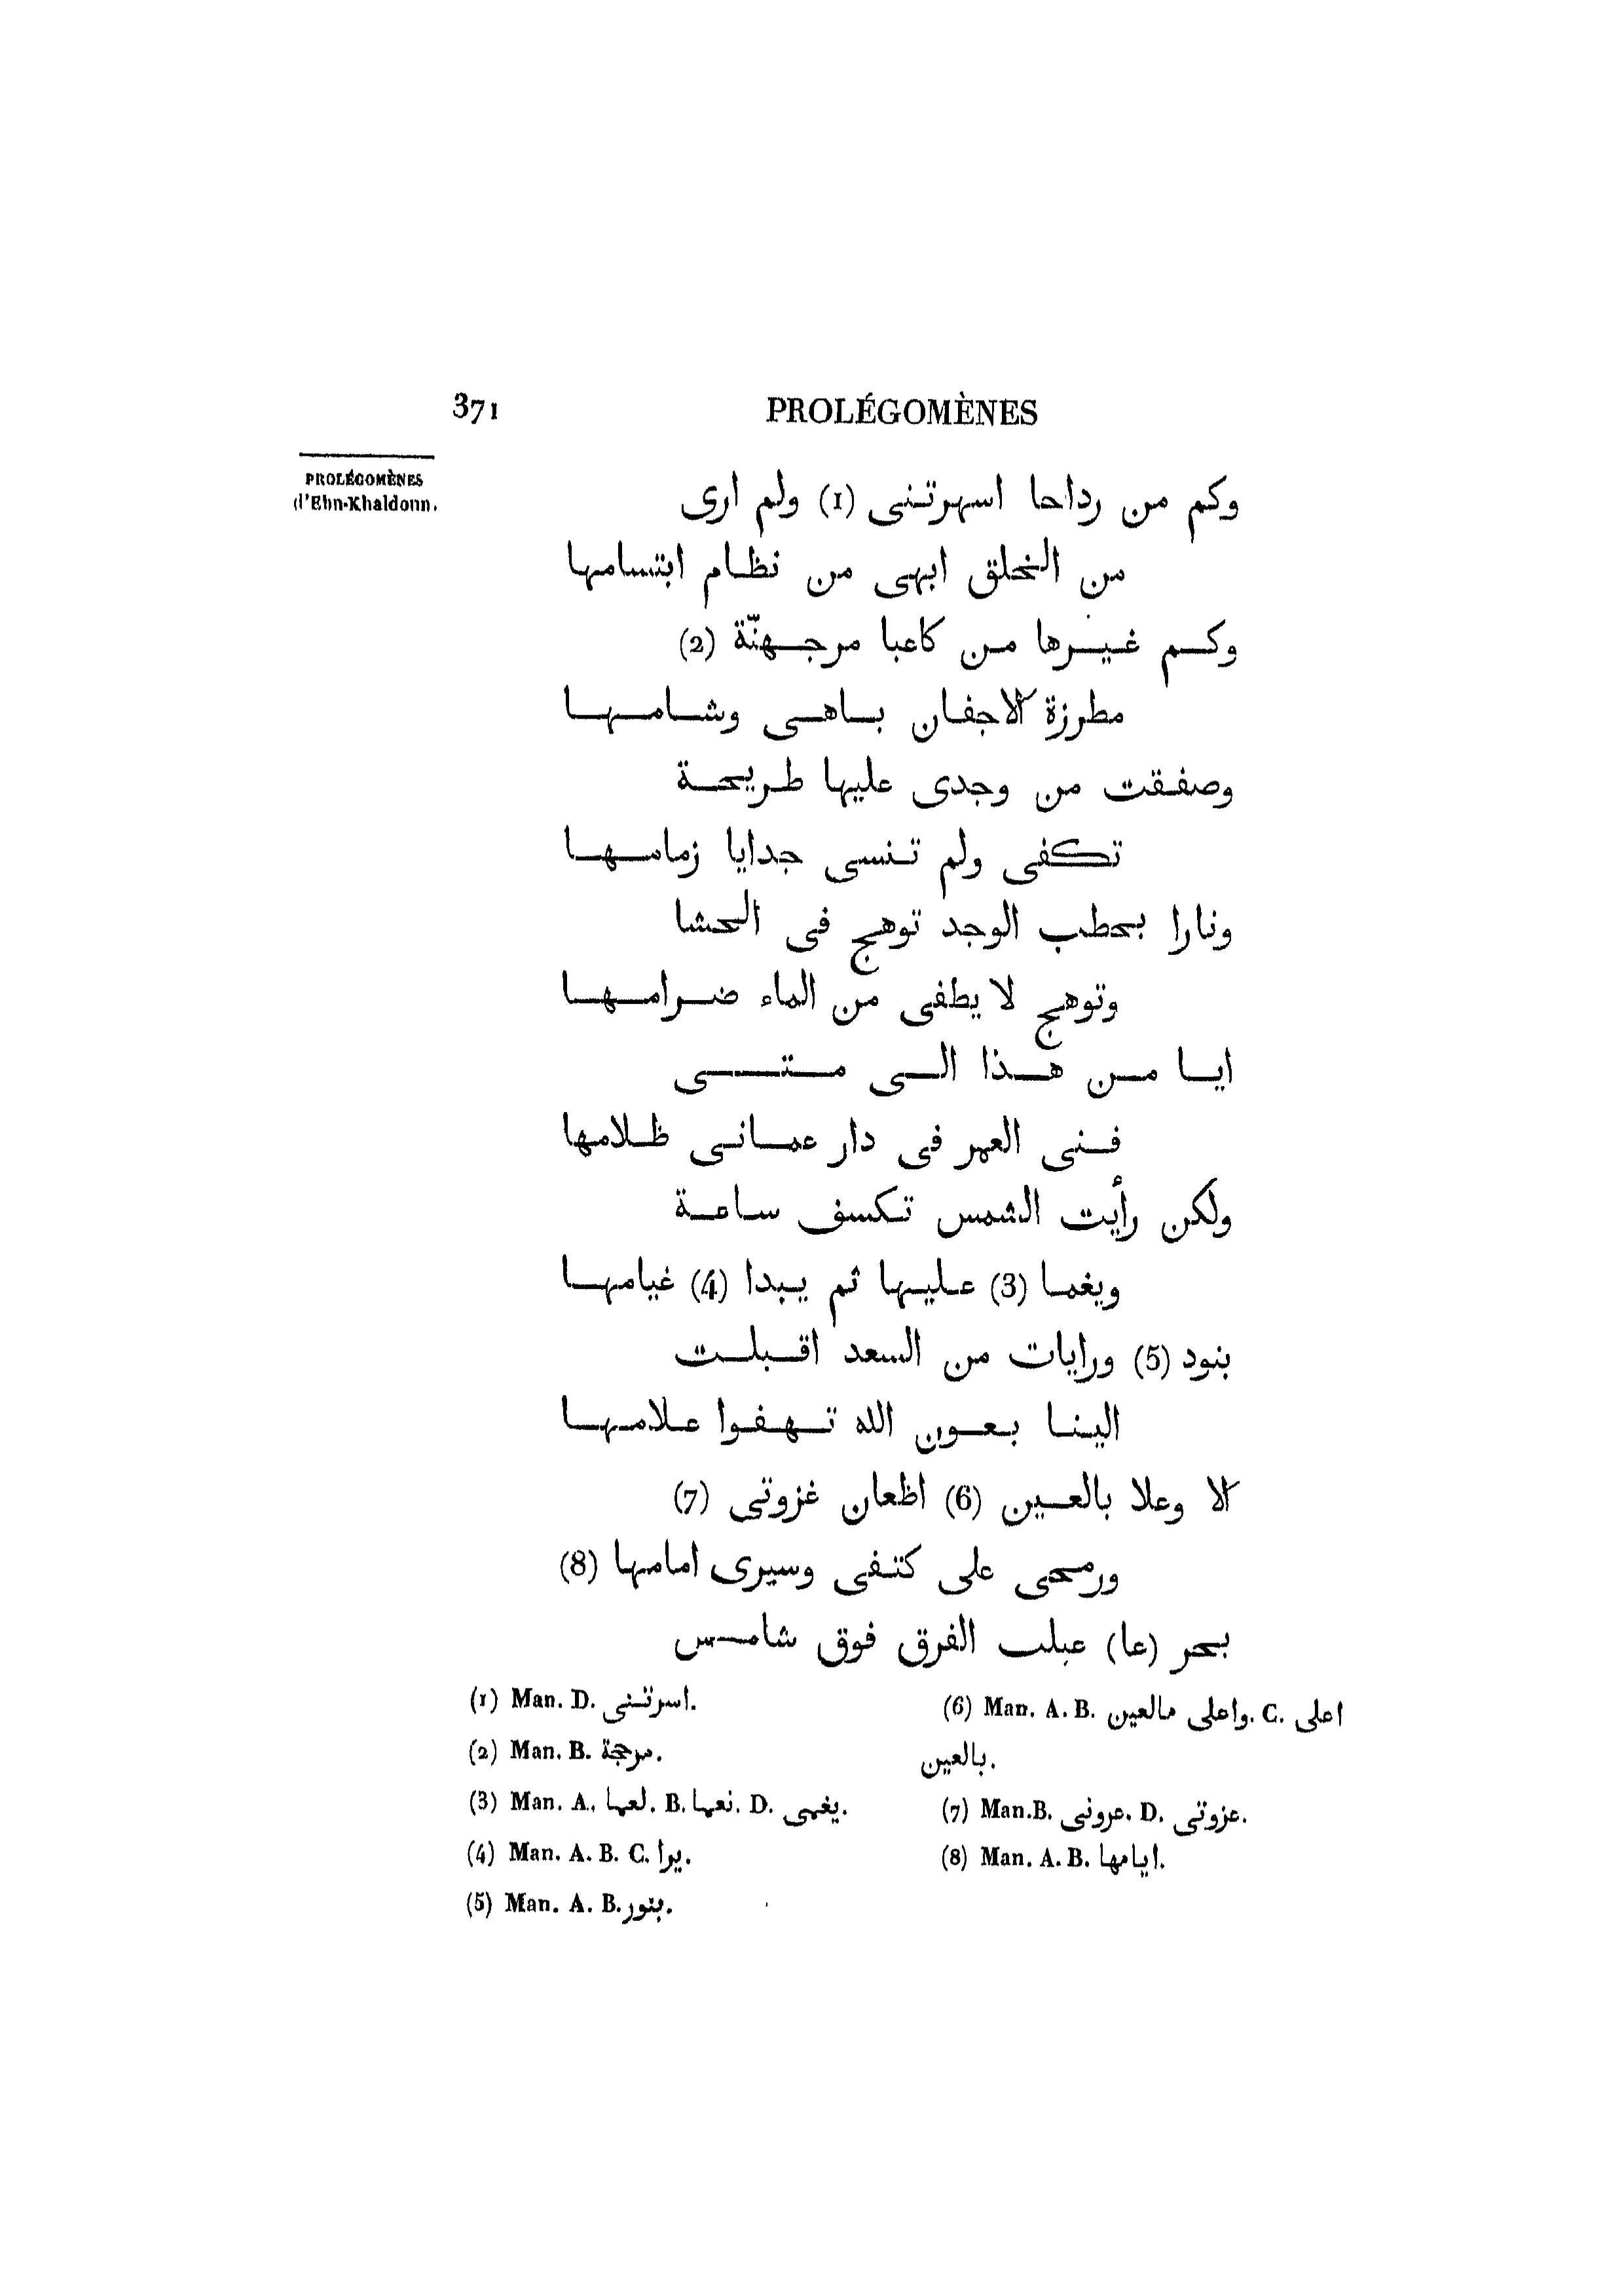 371 PROLÉGOMÈNES
PROLÉGOMÈNES
d'Ebn-Khaldoun.
وكم من رداحا اسهرتنى (1) ولم ارى
من الخلق ابهى من نظام ابتسامها
وكم غيرها من كاعبا مرجهنّة (2)
مطرزة الاجفان باهى وشامها
وصفقت من وجدى عليها طريحة
تكفى ولم تنسى جدايا زمامها
ونارا بحطب الوجد توهج فى الحشا
وتوهج لا يطفى من الماء ضرامها
ايا من هذا الى متى
فنى العمر فى دار عمانى ظلامها
ولكن رأيت الشمس تكسف ساعة
ويغما (3) عليها ثم يبدا (4) غيامها
بنود (5) ورايات من السعد اقبلت
الينا بعون الله تهفوا علامها
الا وعلا بالعين (6) اظعان غزوتى (7)
ورمحى على كتفى وسيرى امامها (8)
بحر (عا) عبلت الفرق فوق شامس
(1) Man. D. اسرتنى.
(2) Man. B. مرجحة.
(3) Man. A. لعها. B. نعها. D. يغمى.
(4) Man. A. B. C. يرا.
(5) Man. A. B. بنور.
(6) Man. A. B. واعلى مالعين. C. اعلى
بالعين.
(7) Man.B. عرونى. D. عزوتى.
(8) Man. A. B. ايامها.